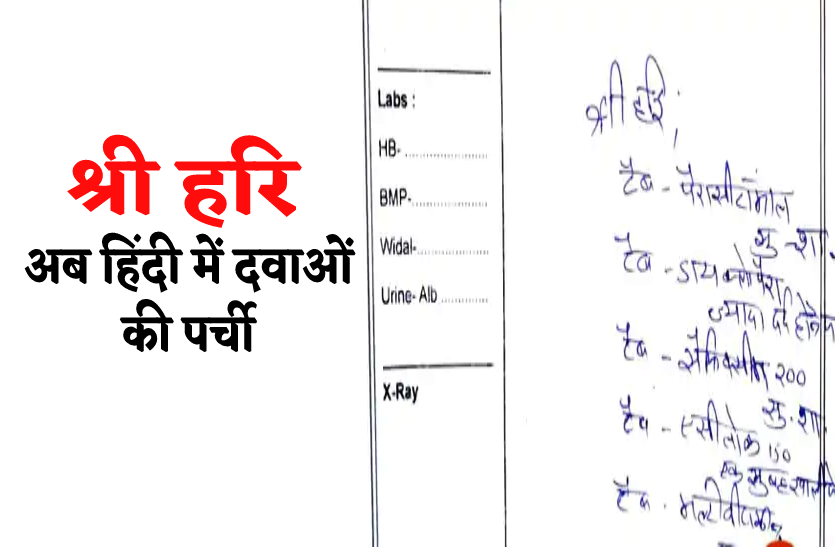 श्री हरि
अब हिंदी में दवाओं
की पर्ची
Labs :
HB-
BMP-
Widal-
Urine- Alb
X-Ray
श्री हरि,
टैब - पैरासीटामोल
सु - शा.
टैब - डायक्लोपैरा
ज्यादा दर्द होने
टैब - सैफिक्सीम 200
सु. शा.
टैब - एसीलोक 150
एक सुबह खाली
टैब - मल्टीवीटामीन